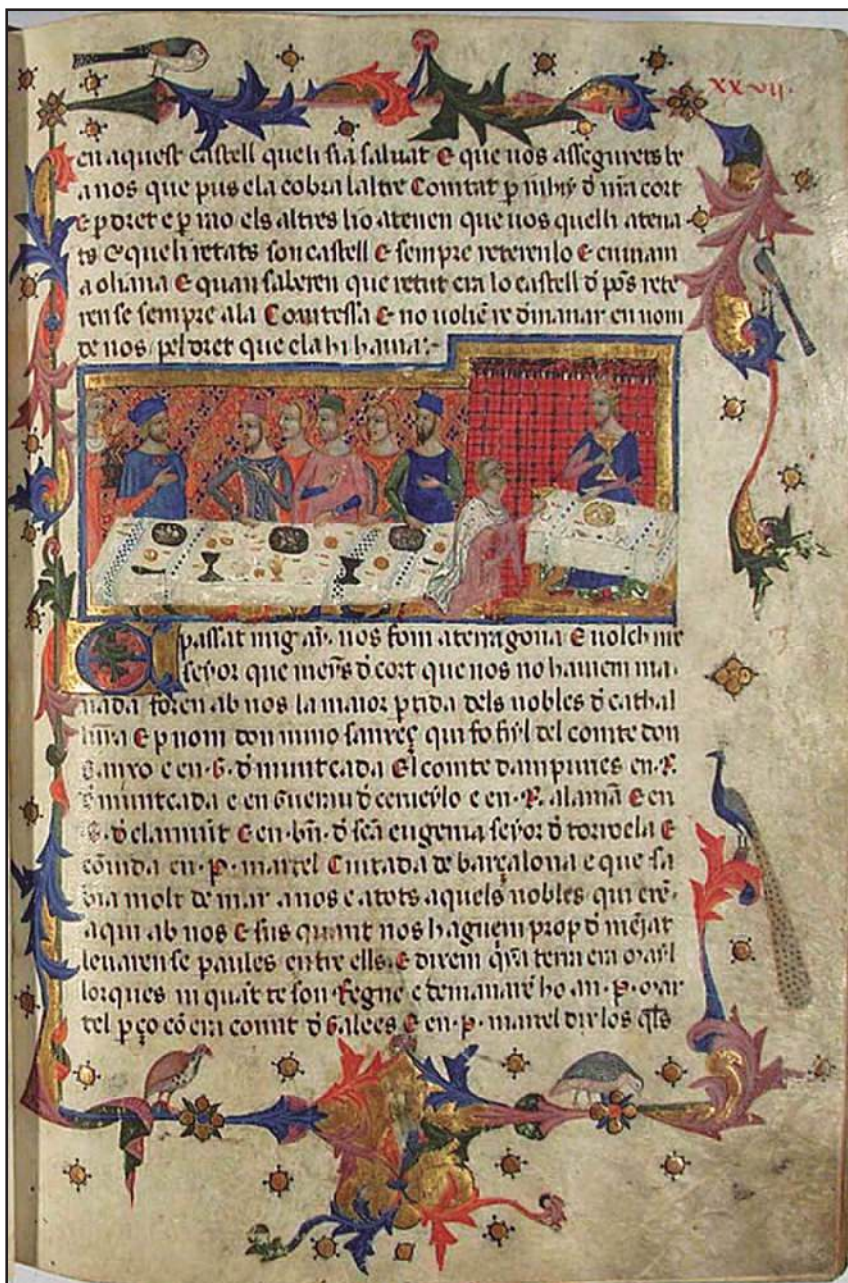 xxvii.
en aquest castell que li sia saluat E que uos assegurets be
a nos que pus ela cobra laltre Comtat p iuhii d nra cort
E p dret e p rao els altres lio atenen que uos quelh atena
ts E que li retats son castell E sempre reterenlo E enuiam
a oliana E quan saberen que retut era lo castell d pos rete
ren se sempre ala Comtessa E no uolie re dmanar en nom
de nos pel dret que ela hi hauia:-
passat mig ay. nos fom a terragona E uolch nre
seyor que meys d cort que nos no hauiem ma
nada foren ab nos la maior ptida dels nobles d cathal
unya E p nom don nuno sanxeç qui fo fiyl del comte don
Sanxo e en .G. d muntcada El comte dampuries en .R.
d muntcada e en Guerau d cerueylo e en .R. alama E en
.G. d clarmunt E en .bn. d sca eugenia seyor d torroela E
couida en .P. martel Ciutada de barçalona e que sa
bia molt de mar a nos e a tots aquels nobles qui ere
aqui ab nos E sus quant nos haguem prop d mejat
leuaren se paules entre ells. E dixem qna terra era mayl
lorques ni quat te son Regne e demanare ho a n .P. mar
tel p ço co era comit d Galees E en .P. martel dix los qls